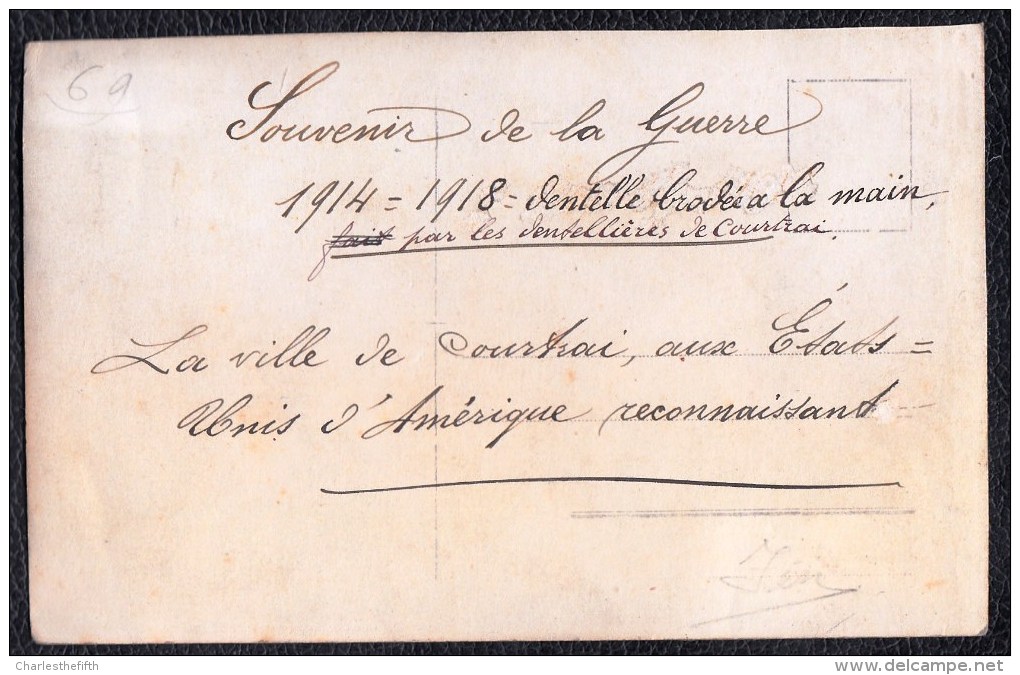 69
Souvenir de la Guerre
1914 = 1918 = dentelle brodée a la main,
fait par les dentellières de Courtrai.
La ville de Courtrai, aux États =
Unis d'Amérique reconnaissant
Charlesthefifth
www.delcampe.net